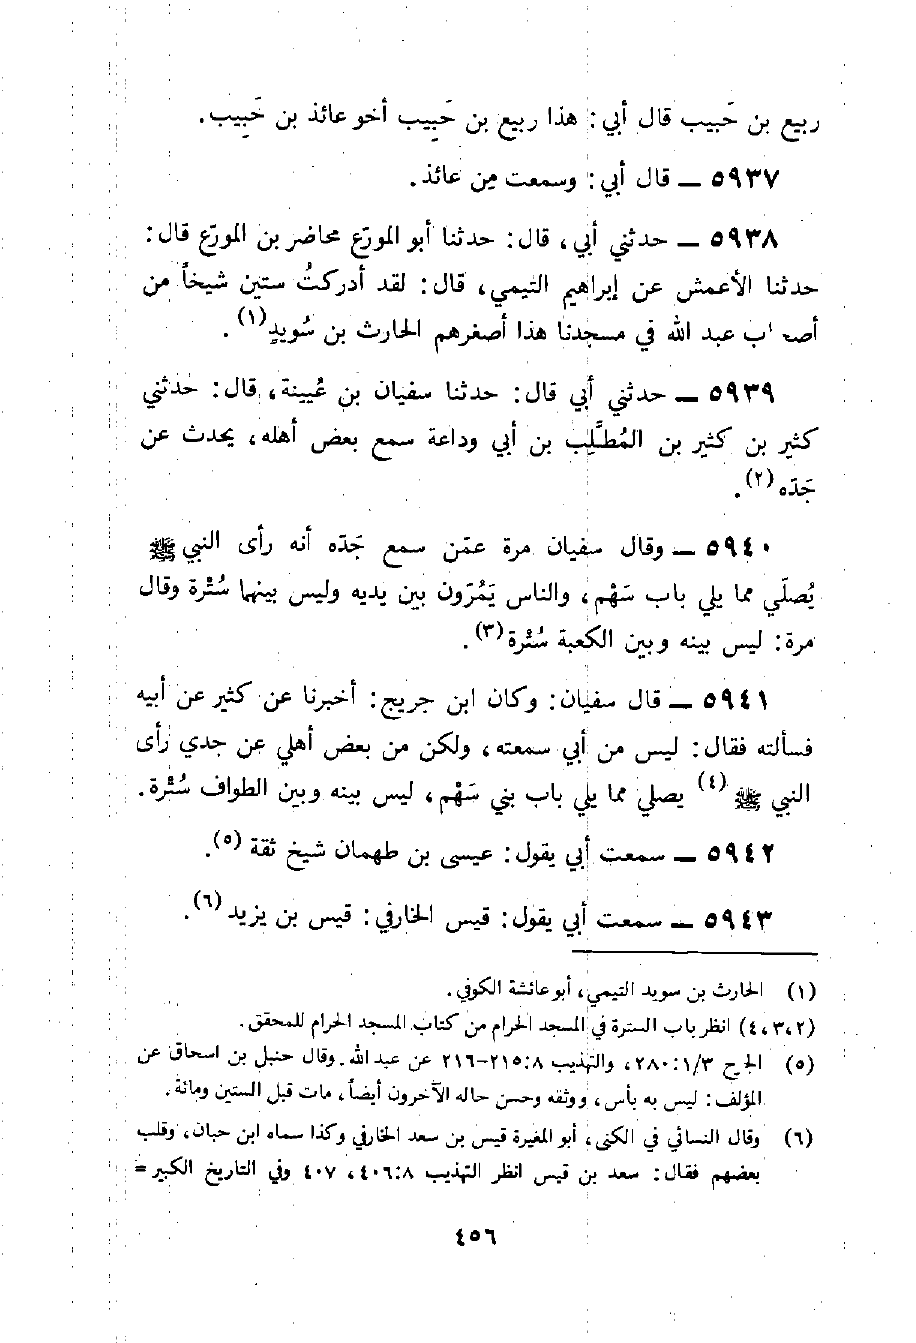 ربيع بن حَبيب قال أبي: هذا ربيع بن حَبِيب أخو عائذ بن حَبِيب.
٥٩٣٧ ــ قال أبي: وسمعت مِن عائذ.
٥٩٣٨ ــ حدثني أبي، قال: حدثنا أبو المورّع محاضر بن المورّع قال:
حدثنا الأعمش عن إبراهيم التيمي، قال: لقد أدركتُ ستين شيخاً من
أصحاب عبد الله في مسجدنا هذا أصغرهم الحارث بن سُويدٍ(١).
٥٩٣٩ ــ حدثني أبي قال: حدثنا سفيان بن عُيينة، قال: حدثني
كثير بن كثير بن المُطَّلِب بن أبي وداعة سمع بعض أهله، يحدث عن
جَدّه(٢).
٥٩٤٠ ــ وقال سفيان مرة عمّن سمع جَدّه أنه رأى النبي ﷺ
يُصلّي مما يلي باب سَهْم، والناس يَمُرّون بين يديه وليس بينهما سُتْرة وقال
مرة: ليس بينه وبين الكعبة سُتْرة(٣).
٥٩٤١ ــ قال سفيان: وكان ابن جريج: أخبرنا عن كثير عن أبيه
فسألته فقال: ليس من أبي سمعته، ولكن من بعض أهلي عن جدي رأى
النبي ﷺ(٤) يصلي مما يلي باب بني سَهْم، ليس بينه وبين الطواف سُتْرة.
٥٩٤٢ ــ سمعت أبي يقول: عيسى بن طهمان شيخ ثقة(٥).
٥٩٤٣ ــ سمعت أبي يقول: قيس الخارفي: قيس بن يزيد(٦).
(١) الحارث بن سويد التيمي، أبو عائشة الكوفي.
(٢،٣،٤) انظر باب السترة في المسجد الحرام من كتاب المسجد الحرام للمحقق.
(٥) الجرح ١/٣: ٢٨٠، والتهذيب ٨: ٢١٥-٢١٦ عن عبد الله. وقال حنبل بن اسحاق عن
المؤلف: ليس به بأس، ووثقه وحسن حاله الآخرون أيضاً، مات قبل الستين ومائة.
(٦) وقال النسائي في الكنى، أبو المغيرة قيس بن سعد الخارفي وكذا سماه ابن حبان، وقلب
بعضهم فقال: سعد بن قيس انظر التهذيب ٨: ٤٠٦، ٤٠٧ وفي التاريخ الكبير =
٤٥٦